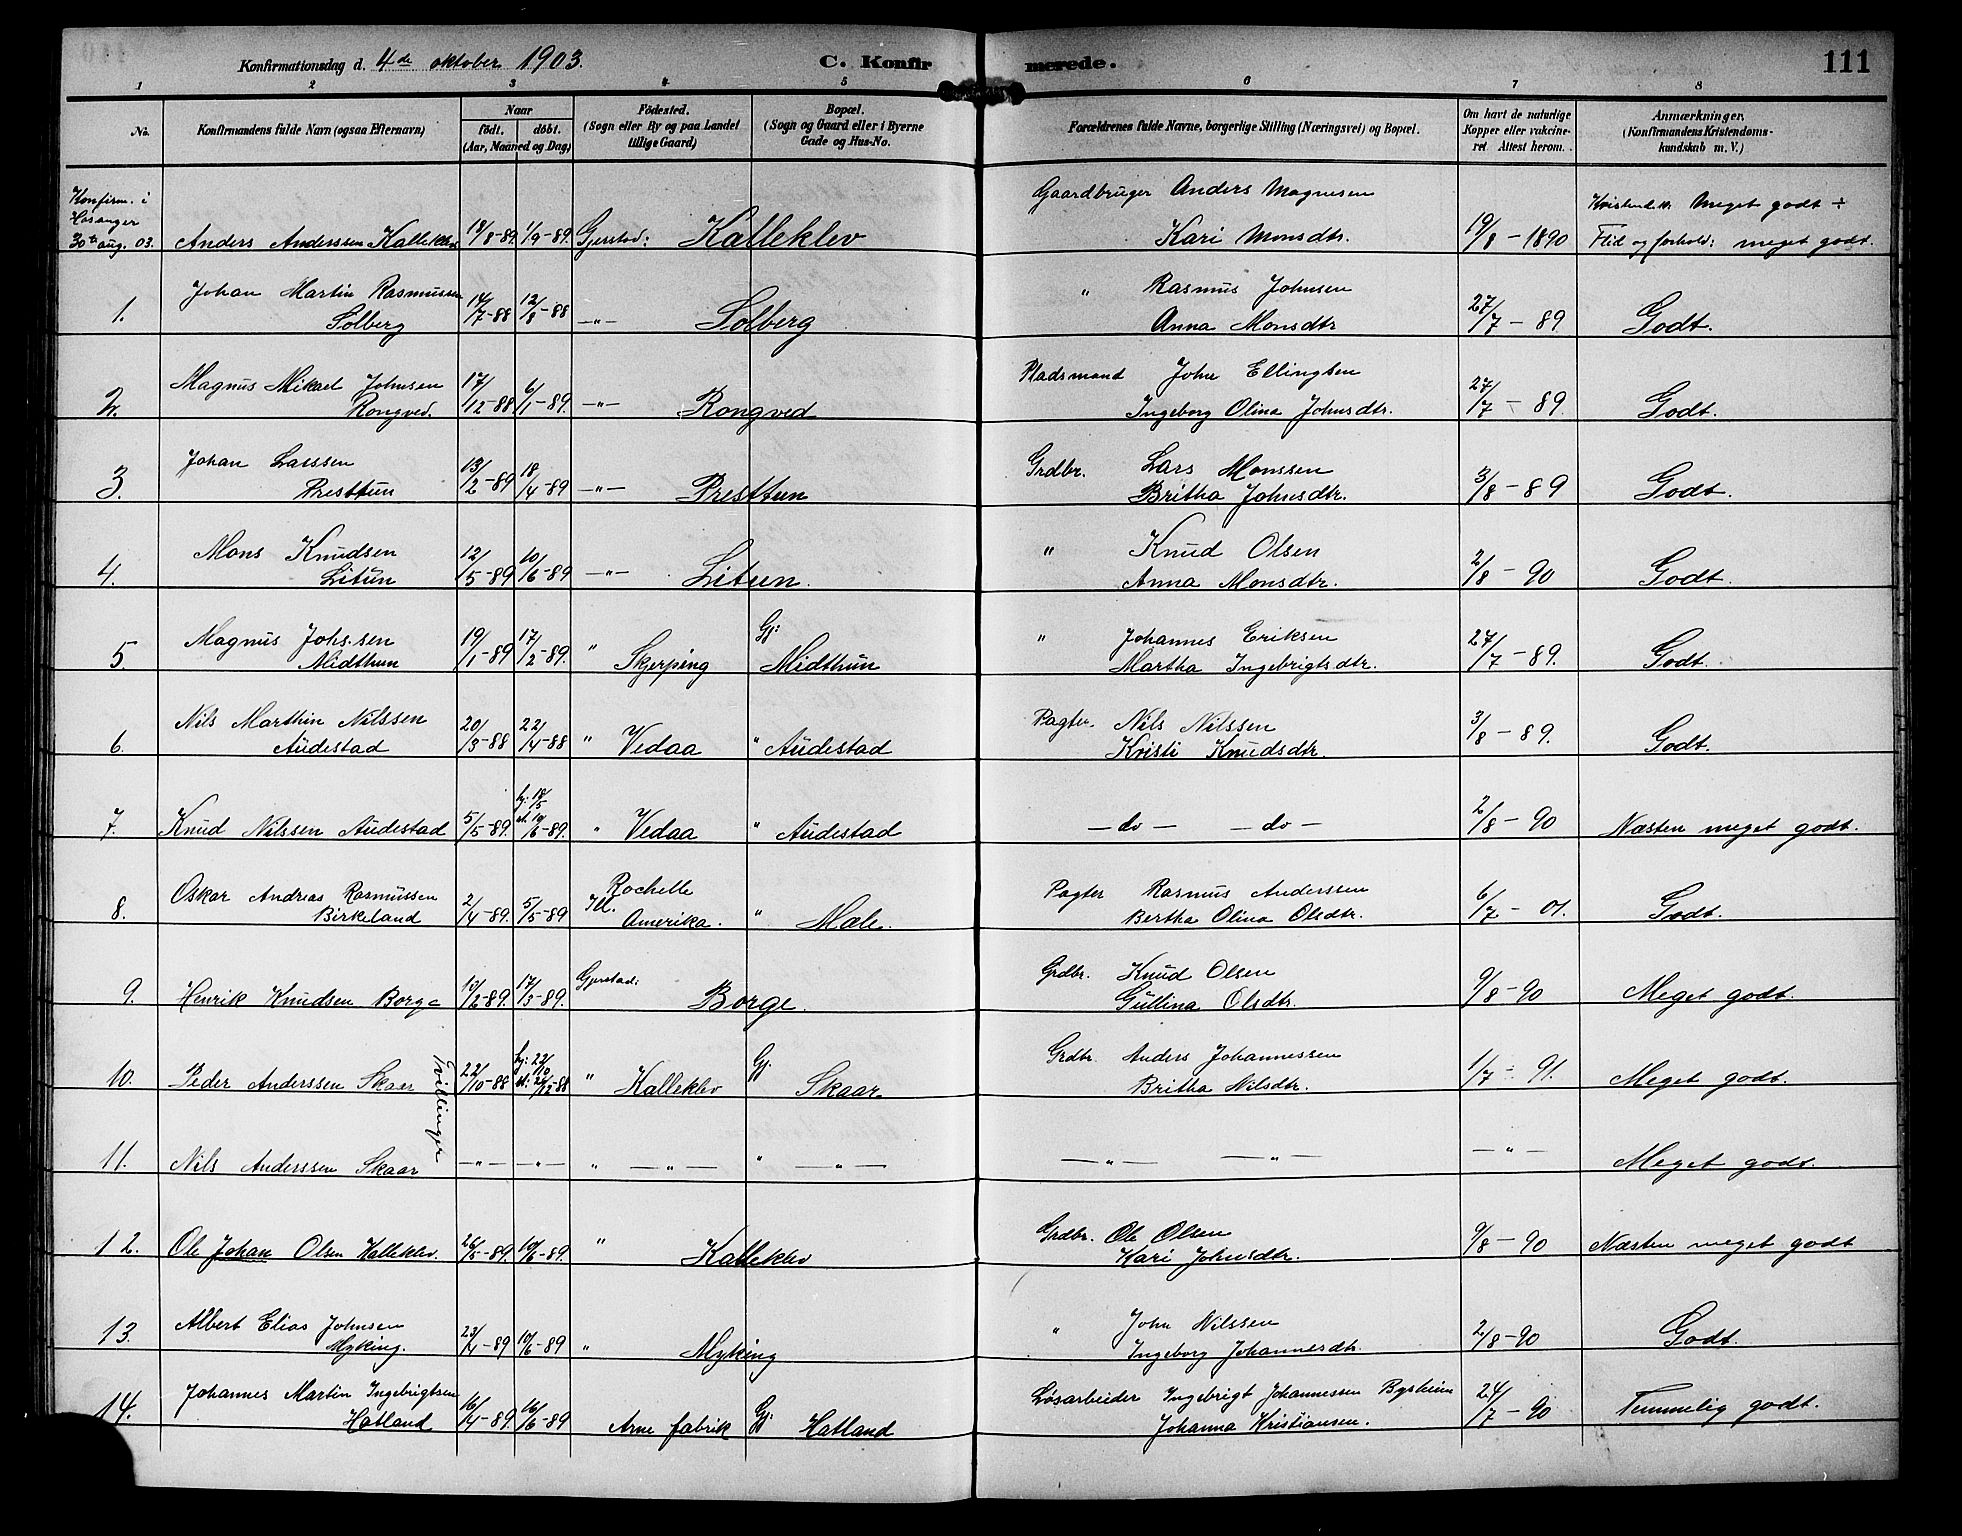 Konfirmationsdag d. 4de oktober 1903.
C. Konfirmerede.
111
1 2 3 4 5 6 7 8
No.
Konfirmandens fulde Navn (ogsaa Efternavn)
Naar
födt. döbt.
(Aar, Maaned og Dag)
Födested.
(Sogn eller By og paa Landet
tillige Gaard)
Bopæl.
(Sogn og Gaard eller i Byerne
Gade og Hus-No.
Forældrenes fulde Navne, borgerlige Stilling (Næringsvei) og Bopæl.
Om havt de naturlige
Kopper eller vakcine-
ret Attest herom.
Anmærkninger.
(Konfirmandens Kristendoms-
kundskab m. V.)
Konfirm. i
Hosanger
30te aug. 03.
Anders Anderssen Kalleklev 18/8-89. 1/9-89. Gjerstad: Kalleklev
Gaardbruger Anders Magnesen
Kari Monsdtr. 19/8-1890
Kristend.k. Meget godt ÷
Flid og forhold: meget godt.
1. Johan Martin Rasmussen
Solberg 14/7-88 12/8-88 -"- Solberg
" Rasmus Johnsen
Anna Monsdtr 27/7-89 Godt.
2. Magnus Mikael Johnsen
Rongved. 17/12-88 6/1-89. -"- Rongved
Pladsmand John Ellingsen
Ingeborg Olina Johnsdtr. 27/7-89 Godt.
3. Johan Larssen
Presttun 13/2-89 18/4-89 -"- Presttun
Grdbr. Lars Monssen
Britha Johnsdtr. 3/8-89 Godt.
4. Mons Knudsen
Litun 12/5-89 10/6-89 -"- Litun.
" Knud Olsen
Anna Monsdtr. 2/8-90 Godt.
5 Magnus Johs.sen
Midthun 19/1-89 17/2-89. " Skjerping Gj: Midthun
" Johannes Eriksen
Martha Ingebrigtsdtr. 27/7-89. Godt.
6. Nils Marthin Nilssen
Audestad 20/3-88 22/4-88 " Vedaa " Audestad
Pagter. Nils Nilssen
Kristi Knudsdtr. 3/8-89. Godt.
7. Knud Nilssen Audestad 5/5-89. hj: 18/5 st. 10/6-89. " Vedaa " Audestad
-do- -do- 2/8-90 Næsten meget godt.
8. Oskar Andreas Rasmussen
Birkeland 2/4-89. 5/5-89 Rochelle
Ill. Amerika. " Male.
Pagter Rasmus Anderssen
Bertha Olina Olsdtr. 6/7-01. Godt.
9. Henrik Knudsen Borge 10/2-89. 17/3-89. Gjerstad: Borge.
Grdbr. Knud Olsen
Gullina Olsdtr. 9/8-90 Meget godt.
10. Peder Anderssen Skaar Tvillinger 22/10-88 hj: 22/10 st: 26/12-88 " Kalleklev Gj. Skaar
Grdbr. Anders Johannessen
Britha Nilsdtr. 1/7-91. Meget godt.
11. Nils Anderssen Skaar -"- -"- " -"- " -"-
-"- -"- -"- Meget godt.
12. Ole Johan Olsen Kalleklev. 26/5-89. 10/6-89. " Kalleklev
Grdbr. Ole Olsen
Kari Johnsdtr. 9/8-90 Næsten meget godt
13. Albert Elias Johnsen
Myking. 23/4-89 10/6-89 " Myking
" John Nilssen
Ingeborg Johannesdtr. 2/8-90 Godt.
14. Johannes Martin Ingebrigtsen
Hatland 16/4-89. 16/6-89 Arne fabrik Gj: Hatland
Løsarbeider Ingebrigt Johannessen Bysheim
Johanna Kristiansen. 24/7-90 Temmelig godt.